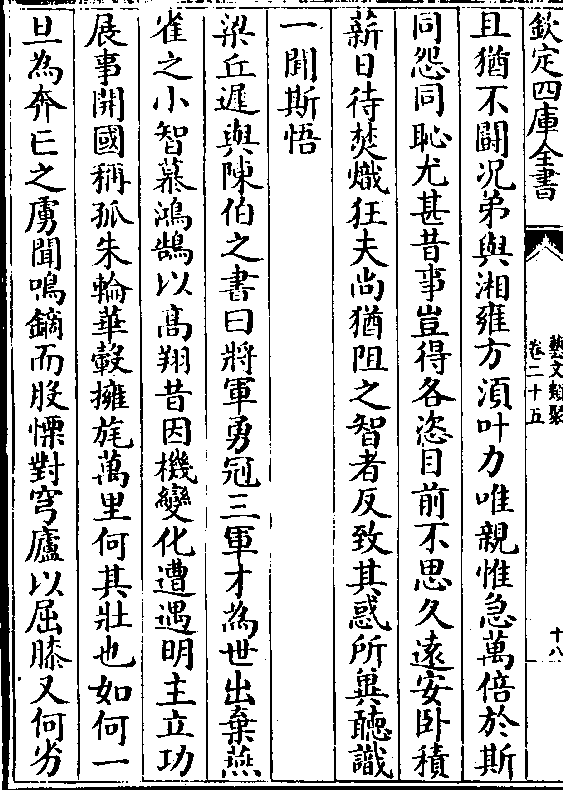 欽定四庫全書
藝文類聚
卷二十五
十八
且猶不鬭况弟與湘雍方湏叶力唯親惟急萬倍於斯
同怨同恥尤甚昔事豈得各恣目前不思久遠安卧積
薪日待焚熾狂夫尚猶阻之智者反致其惑所兾聽識
一聞斯悟
梁丘遲與陳伯之書曰將軍勇冠三軍才為世出棄燕
雀之小智慕鴻鵠以髙翔昔因機變化遭遇明主立功
展事開國稱孤朱輪華轂擁旄萬里何其壯也如何一
旦為奔亡之虜聞鳴鏑而股慄對穹廬以屈膝又何劣